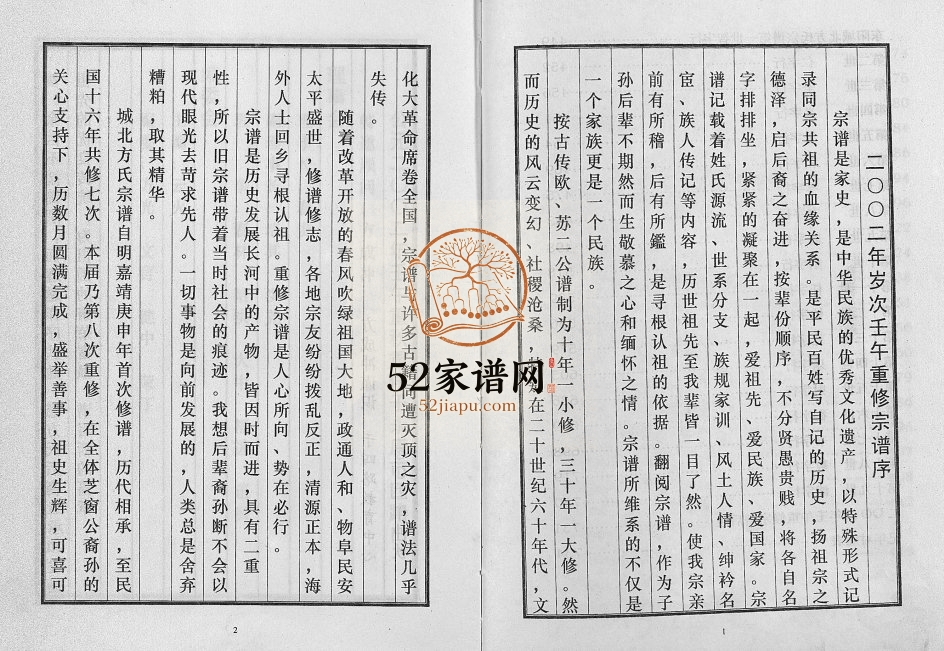 二〇〇二年岁次壬午重修宗谱序
宗谱是家史，是中华民族的优秀文化遗产，以特殊形式记
录同宗共祖的血缘关系。是平民百姓写自记的历史，扬祖宗之
德泽，启后裔之奋进，按辈份顺序，不分贤愚贵贱，将各自名
字排排坐，紧紧的凝聚在一起，爱祖先、爱民族、爱国家。宗
谱记载着姓氏源流、世系分支、族规家训、风土人情、绅衿名
宦、族人传记等内容，历世祖先至我辈皆一目了然。使我宗亲
前有所稽，后有所鑑，是寻根认祖的依据。翻阅宗谱，作为子
孙后辈不期然而生敬慕之心和缅怀之情。宗谱所维系的不仅是
一个家族更是一个民族。
按古传欧、苏二公谱制为十年一小修，三十年一大修。然
而历史的风云变幻、社稷沧桑，在二十世纪六十年代，文
1
化大革命席卷全国，宗谱与许多古籍同遭灭顶之灾，谱法几乎
失传。
随着改革开放的春风吹绿祖国大地，政通人和、物阜民安
太平盛世，修谱修志，各地宗友纷纷拨乱反正，清源正本，海
外人士回乡寻根认祖。重修宗谱是人心所向、势在必行。
宗谱是历史发展长河中的产物，皆因时而进，具有二重
性，所以旧宗谱带着当时社会的痕迹。我想后辈裔孙断不会以
现代眼光去苛求先人。一切事物是向前发展的，人类总是舍弃
糟粕，取其精华。
城北方氏宗谱自明嘉靖庚申年首次修谱，历代相承，至民
国十六年共修七次。本届乃第八次重修，在全体芝窗公裔孙的
关心支持下，历数月圆满完成，盛举善事，祖史生辉，可喜可
2
52家谱网
52jiapu.com